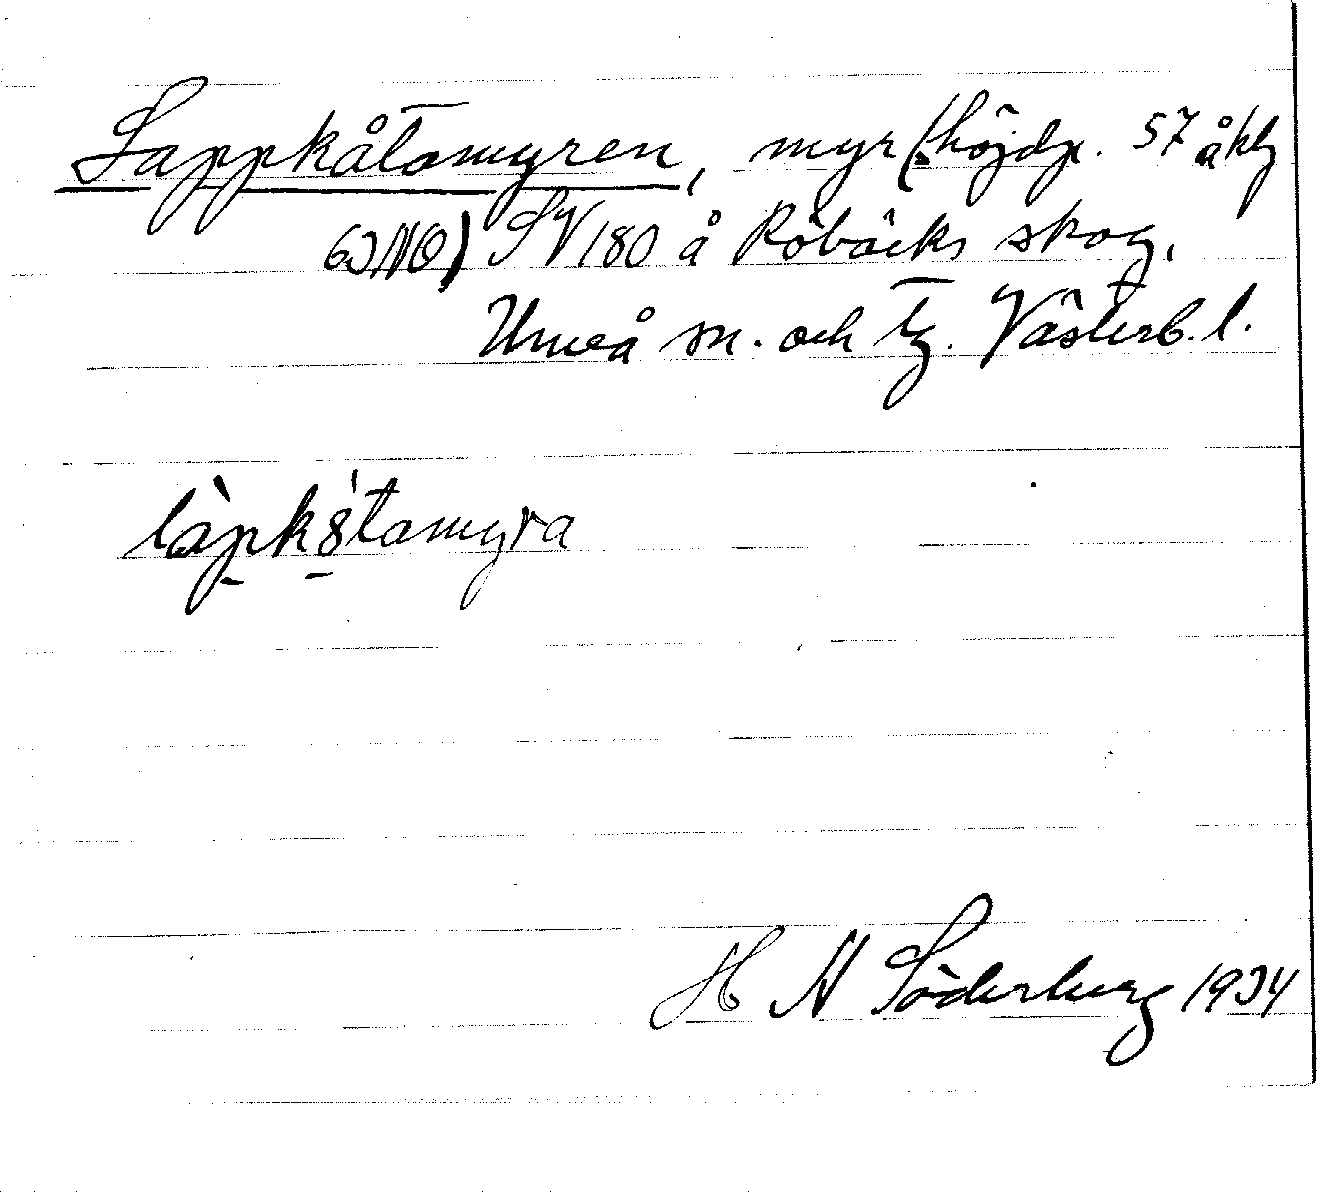 Lappkåtamyren, myr (höjdp. 57 å kbl
63 NO) SV 180 å Röbäcks skog,
Umeå sn. och tg. Västerb. l.
làpk8̀tamyra
H N Söderberg 1934